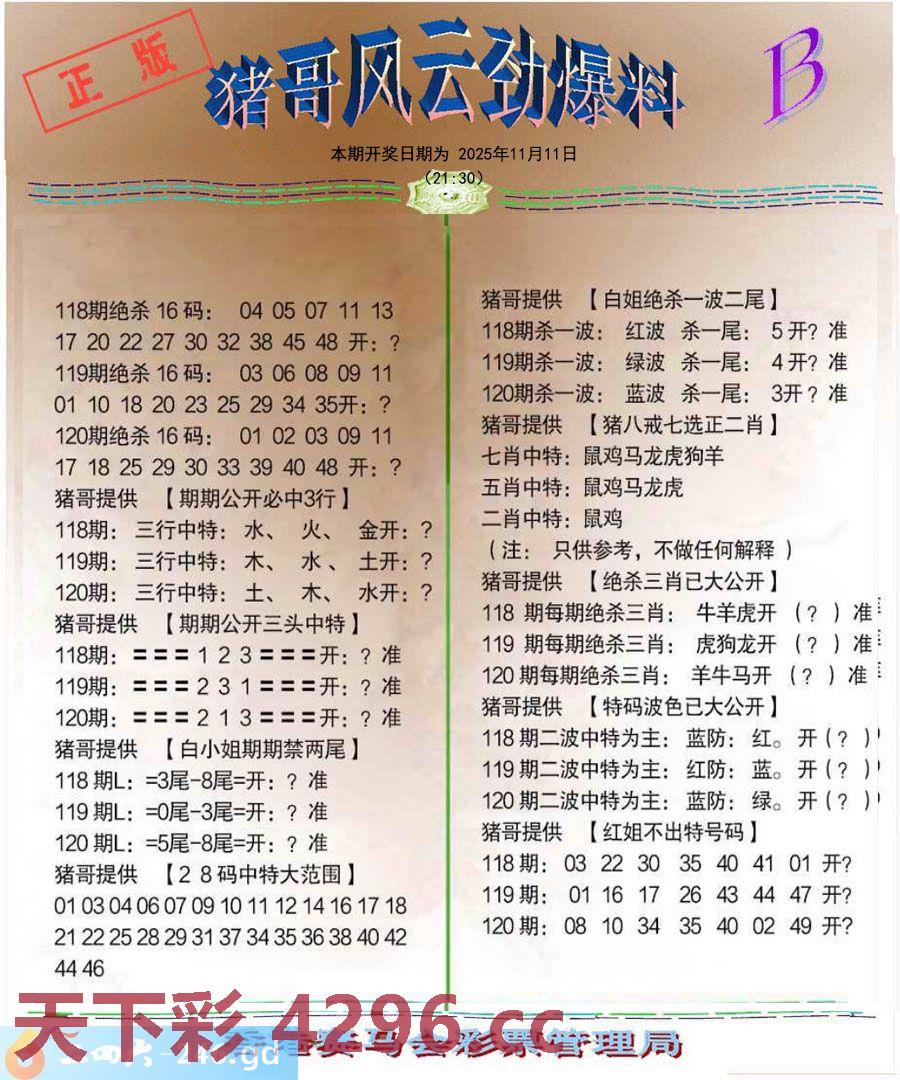 正版
猪哥风云劲爆料
B
本期开奖日期为 2025年11月11日
（21:30）
118期绝杀 16 码： 04 05 07 11 13
17 20 22 27 30 32 38 45 48 开：？
119期绝杀 16 码： 03 06 08 09 11
01 10 18 20 23 25 29 34 35开：？
120期绝杀 16 码： 01 02 03 09 11
17 18 25 29 30 33 39 40 48 开：？
猪哥提供 【期期公开必中3行】
118期： 三行中特： 水、 火、 金开：？
119期： 三行中特： 木、 水、 土开：？
120期： 三行中特： 土、 木、 水开：？
猪哥提供 【期期公开三头中特】
118期：＝＝＝１２３＝＝＝开：？准
119期：＝＝＝２３１＝＝＝开：？准
120期：＝＝＝２１３＝＝＝开：？准
猪哥提供 【白小姐期期禁两尾】
118 期L：=3尾-8尾=开：？准
119 期L：=0尾-3尾=开：？准
120 期L：=5尾-8尾=开：？准
猪哥提供 【２８码中特大范围】
01 03 04 06 07 09 10 11 12 14 16 17 18
21 22 25 28 29 31 37 34 35 36 38 40 42
44 46
猪哥提供 【白姐绝杀一波二尾】
118期杀一波： 红波 杀一尾： 5 开？准
119期杀一波： 绿波 杀一尾： 4 开？准
120期杀一波： 蓝波 杀一尾： 3开？准
猪哥提供 【猪八戒七选正二肖】
七肖中特：鼠鸡马龙虎狗羊
五肖中特：鼠鸡马龙虎
二肖中特：鼠鸡
（注： 只供参考，不做任何解释）
猪哥提供 【绝杀三肖已大公开】
118 期每期绝杀三肖： 牛羊虎开 （？）准
119 期每期绝杀三肖： 虎狗龙开 （？）准
120 期每期绝杀三肖： 羊牛马开 （？）准
猪哥提供 【特码波色已大公开】
118 期二波中特为主：蓝防：红。开（？）
119 期二波中特为主：红防：蓝。开（？）
120 期二波中特为主：蓝防：绿。开（？）
猪哥提供 【红姐不出特号码】
118 期： 03 22 30 35 40 41 01 开？
119 期： 01 16 17 26 43 44 47 开？
120 期： 08 10 34 35 40 02 49 开？
天下彩 4296.cc
马会彩票管理局